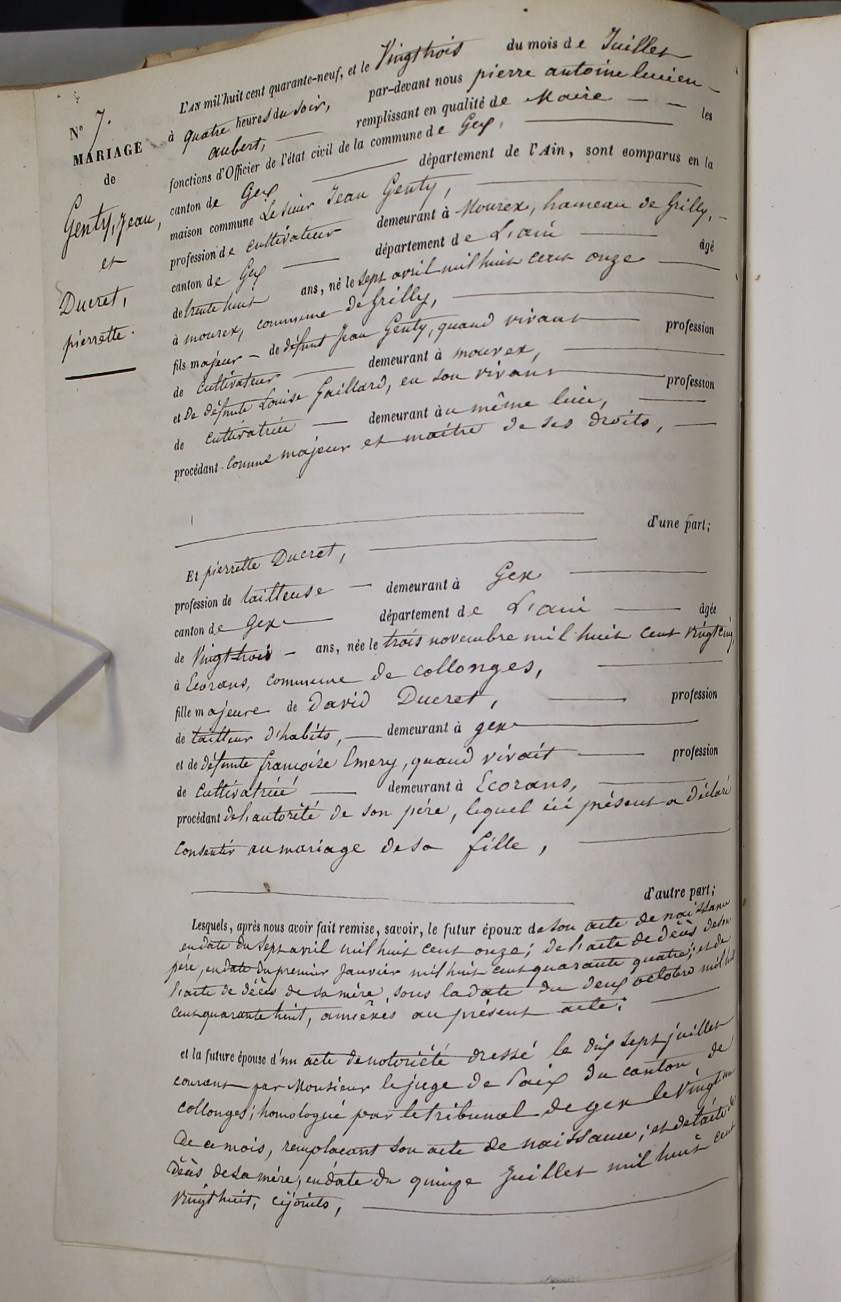 N° 7.
MARIAGE
de
Genty, Jean,
et
Ducret,
pierrette.
L'AN mil huit cent quarante-neuf, et le Vingt trois du mois de Juillet
à quatre heures du soir, par-devant nous pierre antoine lucien
aubert, remplissant en qualité de Maire les
fonctions d'Officier de l'état civil de la commune de Gex,
canton de Gex département de l'Ain, sont comparus en la
maison commune Le Sieur Jean Genty,
profession de cultivateur demeurant à Mourex, hameau de Grilly,
canton de Gex département de L'ain âgé
de trente huit ans, né le sept avril mil huit cent onze
à mourex, commune de Grilly,
fils majeur de défunt Jean Genty, quand vivant profession
de cultivateur demeurant à mourex,
et de défunte Louise Gaillard, en son vivant profession
de cultivatrice demeurant au même lieu,
procédant comme majeur et maître de ses droits,
d'une part;
Et pierrette Ducret,
profession de tailleuse demeurant à Gex
canton de Gex département de L'ain âgée
de Vingt trois ans, née le trois novembre mil huit cent vingt cinq,
à Ecorans, commune de collonges,
fille majeure de David Ducret, profession
de tailleur d'habits, demeurant à gex
et de défunte françoise Emery, quand vivait profession
de cultivatrice demeurant à Ecorans,
procédant de l'autorité de son père, lequel ici présent a déclaré
consentir au mariage de sa fille,
d'autre part;
Lesquels, après nous avoir fait remise, savoir, le futur époux de son acte de naissance
en date du sept avril mil huit cent onze; de l'acte de décès de son
père, en date du premier Janvier mil huit cent quarante quatre; et de
l'acte de décès de sa mère, sous la date du deux octobre mil huit
cent quarante huit, annexés au présent acte;
et la future épouse d'un acte de notoriété dressé le dix sept juillet
courant par Monsieur le juge de Paix du canton de
collonges; homologué par le tribunal de gex le Vingt un
de ce mois, remplaçant son acte de naissance; et de l'acte de
décès de sa mère, en date du quinze Juillet mil huit cent
vingt huit, ci joints,